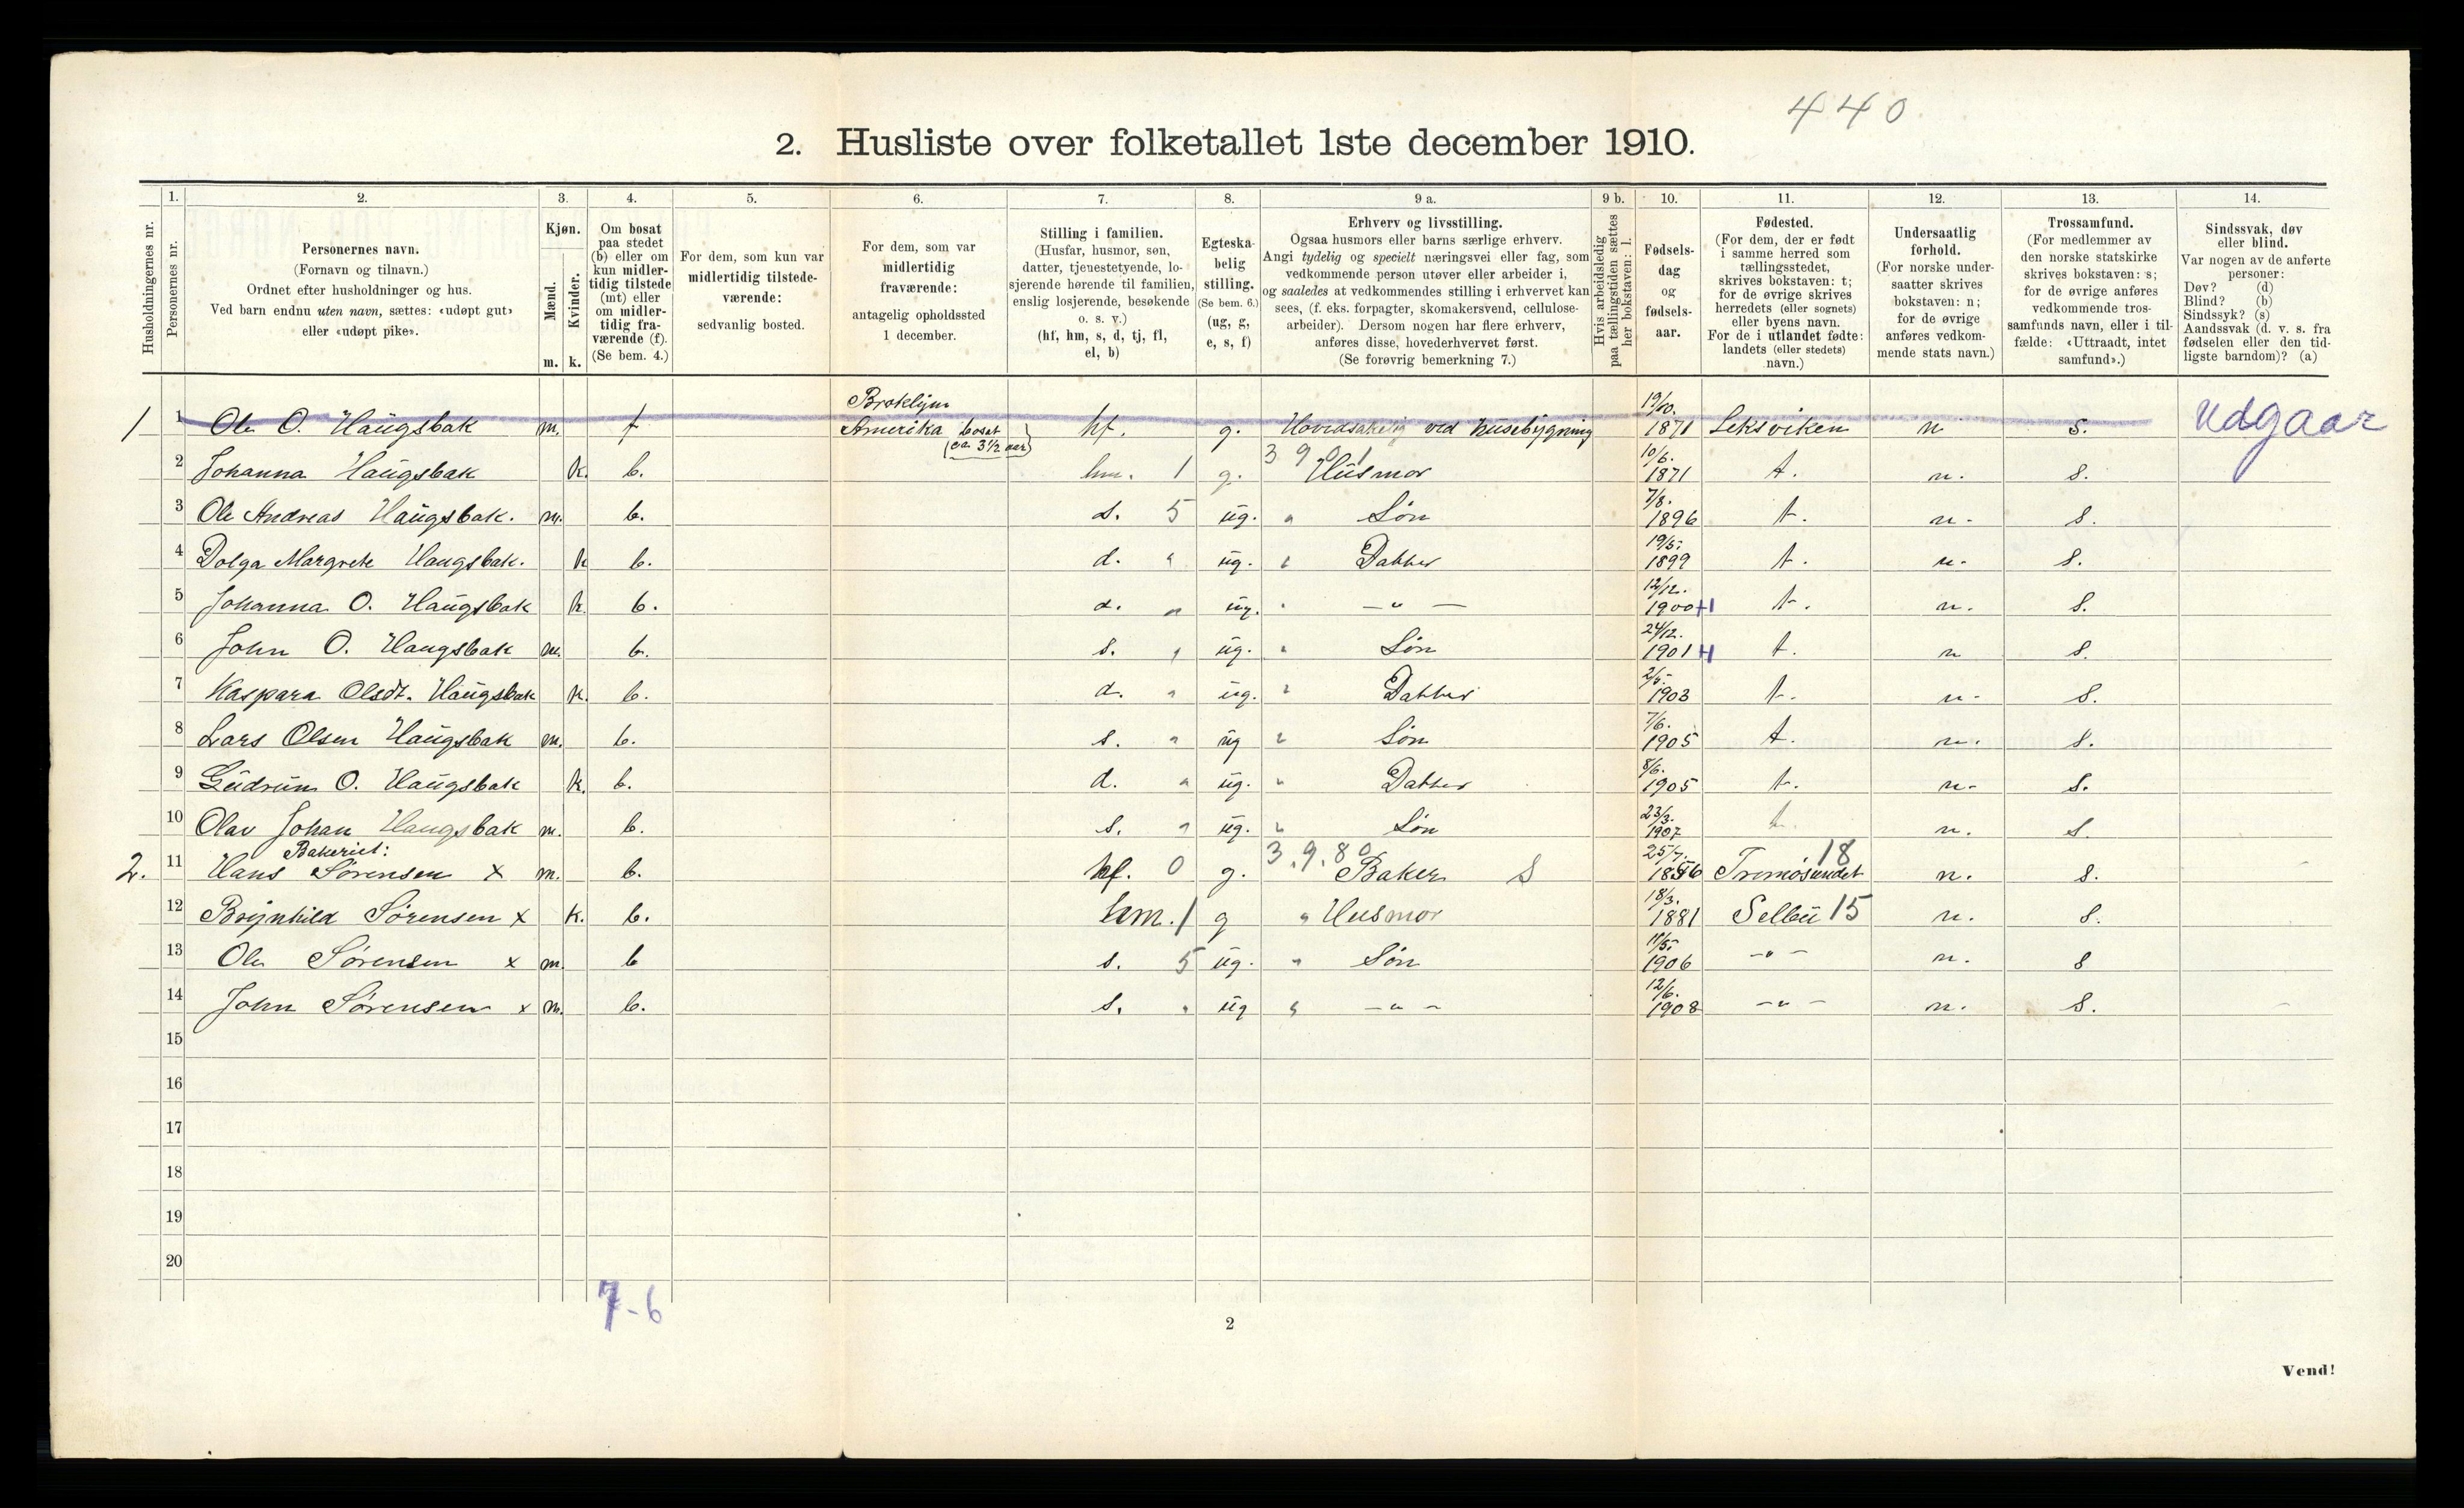 440
2. Husliste over folketallet 1ste december 1910.
1. 2. 3. 4. 5. 6. 7. 8. 9 a. 9 b. 10. 11. 12. 13. 14.
Husholdningernes nr.
Personernes nr.
Personernes navn.
(Fornavn og tilnavn.)
Ordnet efter husholdninger og hus.
Ved barn endnu uten navn, sættes: «udøpt gut»
eller «udøpt pike».
Kjøn.
Mænd.
Kvinder.
m. k.
Om bosat
paa stedet
(b) eller om
kun midler-
tidig tilstede
(mt) eller
om midler-
tidig fra-
værende (f).
(Se bem. 4.)
For dem, som kun var
midlertidig tilstede-
værende:
sedvanlig bosted.
For dem, som var
midlertidig
fraværende:
antagelig opholdssted
1 december.
Stilling i familien.
(Husfar, husmor, søn,
datter, tjenestetyende, lo-
sjerende hørende til familien,
enslig losjerende, besøkende
o. s. v.)
(hf, hm, s, d, tj, fl,
el, b)
Egteska-
belig
stilling.
(Se bem. 6.)
(ug, g,
e, s, f)
Erhverv og livsstilling.
Ogsaa husmors eller barns særlige erhverv.
Angi tydelig og specielt næringsvei eller fag, som
vedkommende person utøver eller arbeider i,
og saaledes at vedkommendes stilling i erhvervet kan
sees, (f. eks. forpagter, skomakersvend, cellulose-
arbeider). Dersom nogen har flere erhverv,
anføres disse, hovederhvervet først.
(Se forøvrig bemerkning 7.)
Hvis arbeidsledig
paa tællingstiden sættes
her bokstaven: l.
Fødsels-
dag
og
fødsels-
aar.
Fødested.
(For dem, der er født
i samme herred som
tællingsstedet,
skrives bokstaven: t;
for de øvrige skrives
herredets (eller sognets)
eller byens navn.
For de i utlandet fødte:
landets (eller stedets)
navn.)
Undersaatlig
forhold.
(For norske under-
saatter skrives
bokstaven: n;
for de øvrige
anføres vedkom-
mende stats navn.)
Trossamfund.
(For medlemmer av
den norske statskirke
skrives bokstaven: s;
for de øvrige anføres
vedkommende tros-
samfunds navn, eller i til-
fælde: «Uttraadt, intet
samfund».)
Sindssvak, døv
eller blind.
Var nogen av de anførte
personer:
Døv? (d)
Blind? (b)
Sindssyk? (s)
Aandssvak (d. v. s. fra
fødselen eller den tid-
ligste barndom)? (a)
Broklyn 19/10.
1 1 Ole O. Haugsbak m. f Amerika bosat hf. g. Hovedsakelig ved husebygning 1871 Leksviken n s. Udgaar
(ca. 3½ aar) 3 9 0 1 10/6.
2 Johanna Haugsbak k. b. hm. 1 g. Husmor 1871 t. n. s.
7/8.
3 Ole Andreas Haugsbak. m. b. s. 5 ug. " Søn 1896 t. n. s.
19/5.
4 Dolga Margrete Haugsbak. k b. d. " ug. " Datter 1899 t. n. s.
12/12.
5 Johanna O. Haugsbak k. b. d. " ug. " — " — 1900 +1 t. n. s.
24/12.
6 John O. Haugsbak m. b. s. " ug. " Søn 1901 +1 t. n s.
2/5.
7 Kaspara Olsdt. Haugsbak k. b. d. " ug. " Datter 1903 t. n. s.
7/6.
8 Lars Olsen Haugsbak m. b. s. " ug " Søn 1905 t. n. s.
8/6.
9 Gudrun O. Haugsbak k. b. d. " ug. " Datter 1905 t. n. s.
23/3.
10 Olav Johan Haugsbak m. b. s. " ug. " Søn 1907 t. n. s.
Bakeriet: 3.9.8 0 25/7. 18
2. 11 Hans Sørensen x m. b. hf. 0 g. Baker S 1856 Tromøsundet n. s.
18/3.
12 Brynhild Sørensen x k. b. hm. 1 g " Husmor 1881 Selbu 15 n. s.
11/5.
13 Ole Sørensen x m. b s. 5 ug. " Søn 1906 — " — n. s
12/6.
14 John Sørensen x m. b. s. " ug " — " — 1908 — " — n. s.
15
16
17
18
19
20
7-6
2
Vend!